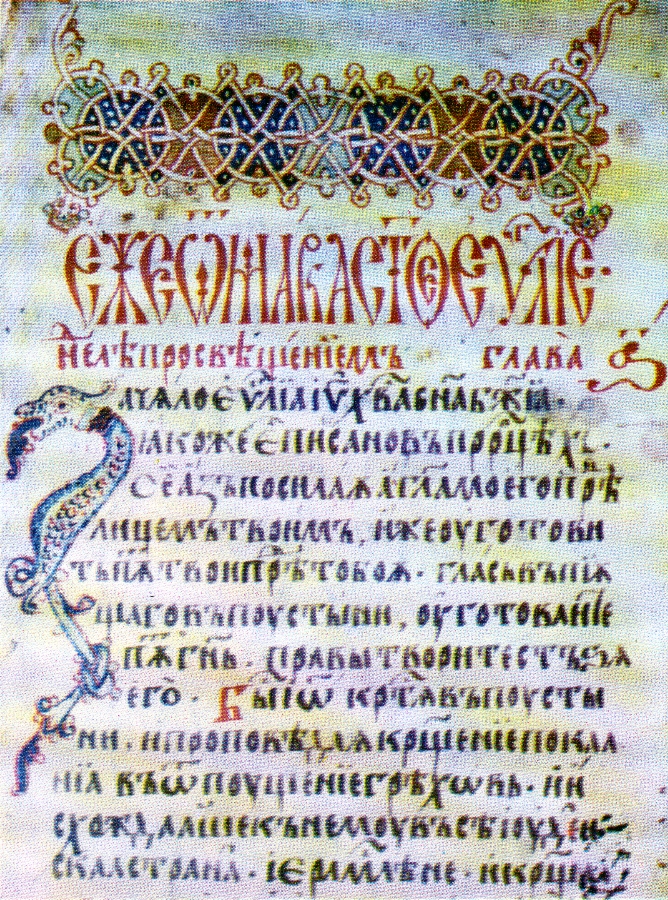 ЄЖЕѾМАКАСТ҃ОЄУ҃ЛІЕ·
не҃лѣпросвѣщенїемъ глава з҃
ꙁачѧлоєу҃лїаіу҃хв҃асн҃аб҃жїа·
ꙗкожеєписановъпрⷪ҇роцѣхъ·
се҃аꙁъпосилаѫаг҃гламоегопрѣⷣ
лицемътвоимъ, ижеоуготови
тьпѫ҃тьтвоипрѣⷣтобоѫ· гласьвьпїѫ
щаговъпоустыни, оуготованїе
пѫ҃гн҃ь· правытворитестьѕѫ
его· Бы҃іѡ҃ кр҃тѧвъпоусты
ни, ипроповѣдаѧкрⷭ҇щенїепокаа
нїа въѿпоущенїегрѣхѡвь· ии
схождаашекънемоувъсѣіоуден
скаастрана· іер҃лмлѣне· икрⷭ҇щ